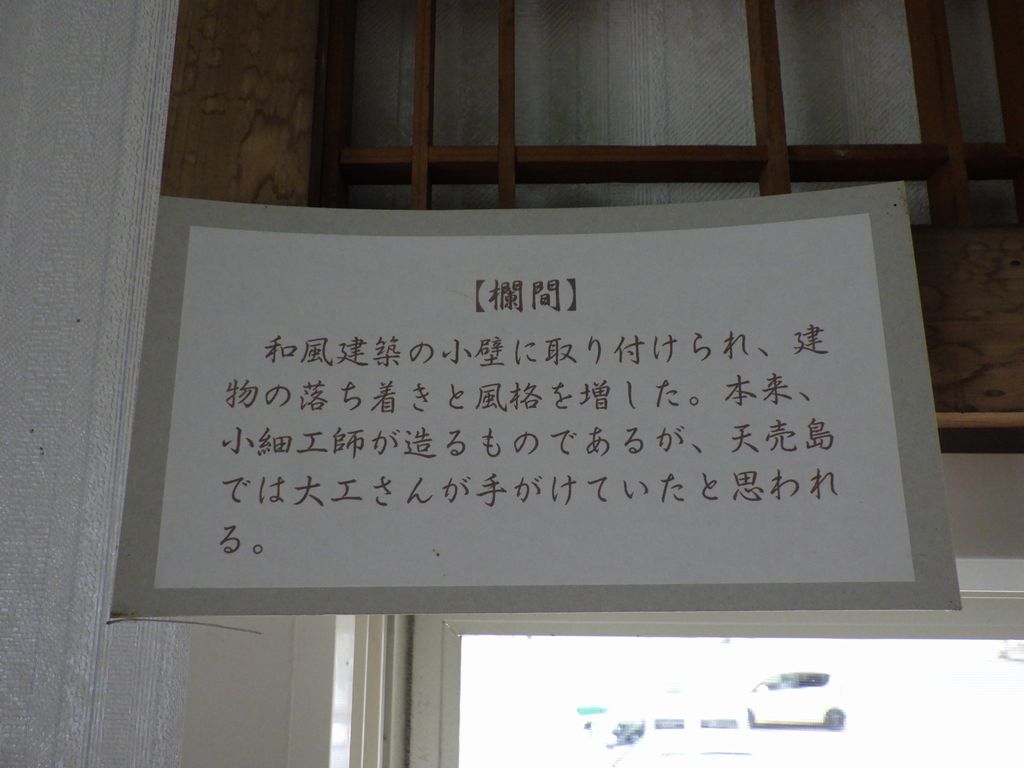 【欄間】
和風建築の小壁に取り付けられ、建
物の落ち着きと風格を増した。本来、
小細工師が造るものであるが、天売島
では大工さんが手がけていたと思われ
る。